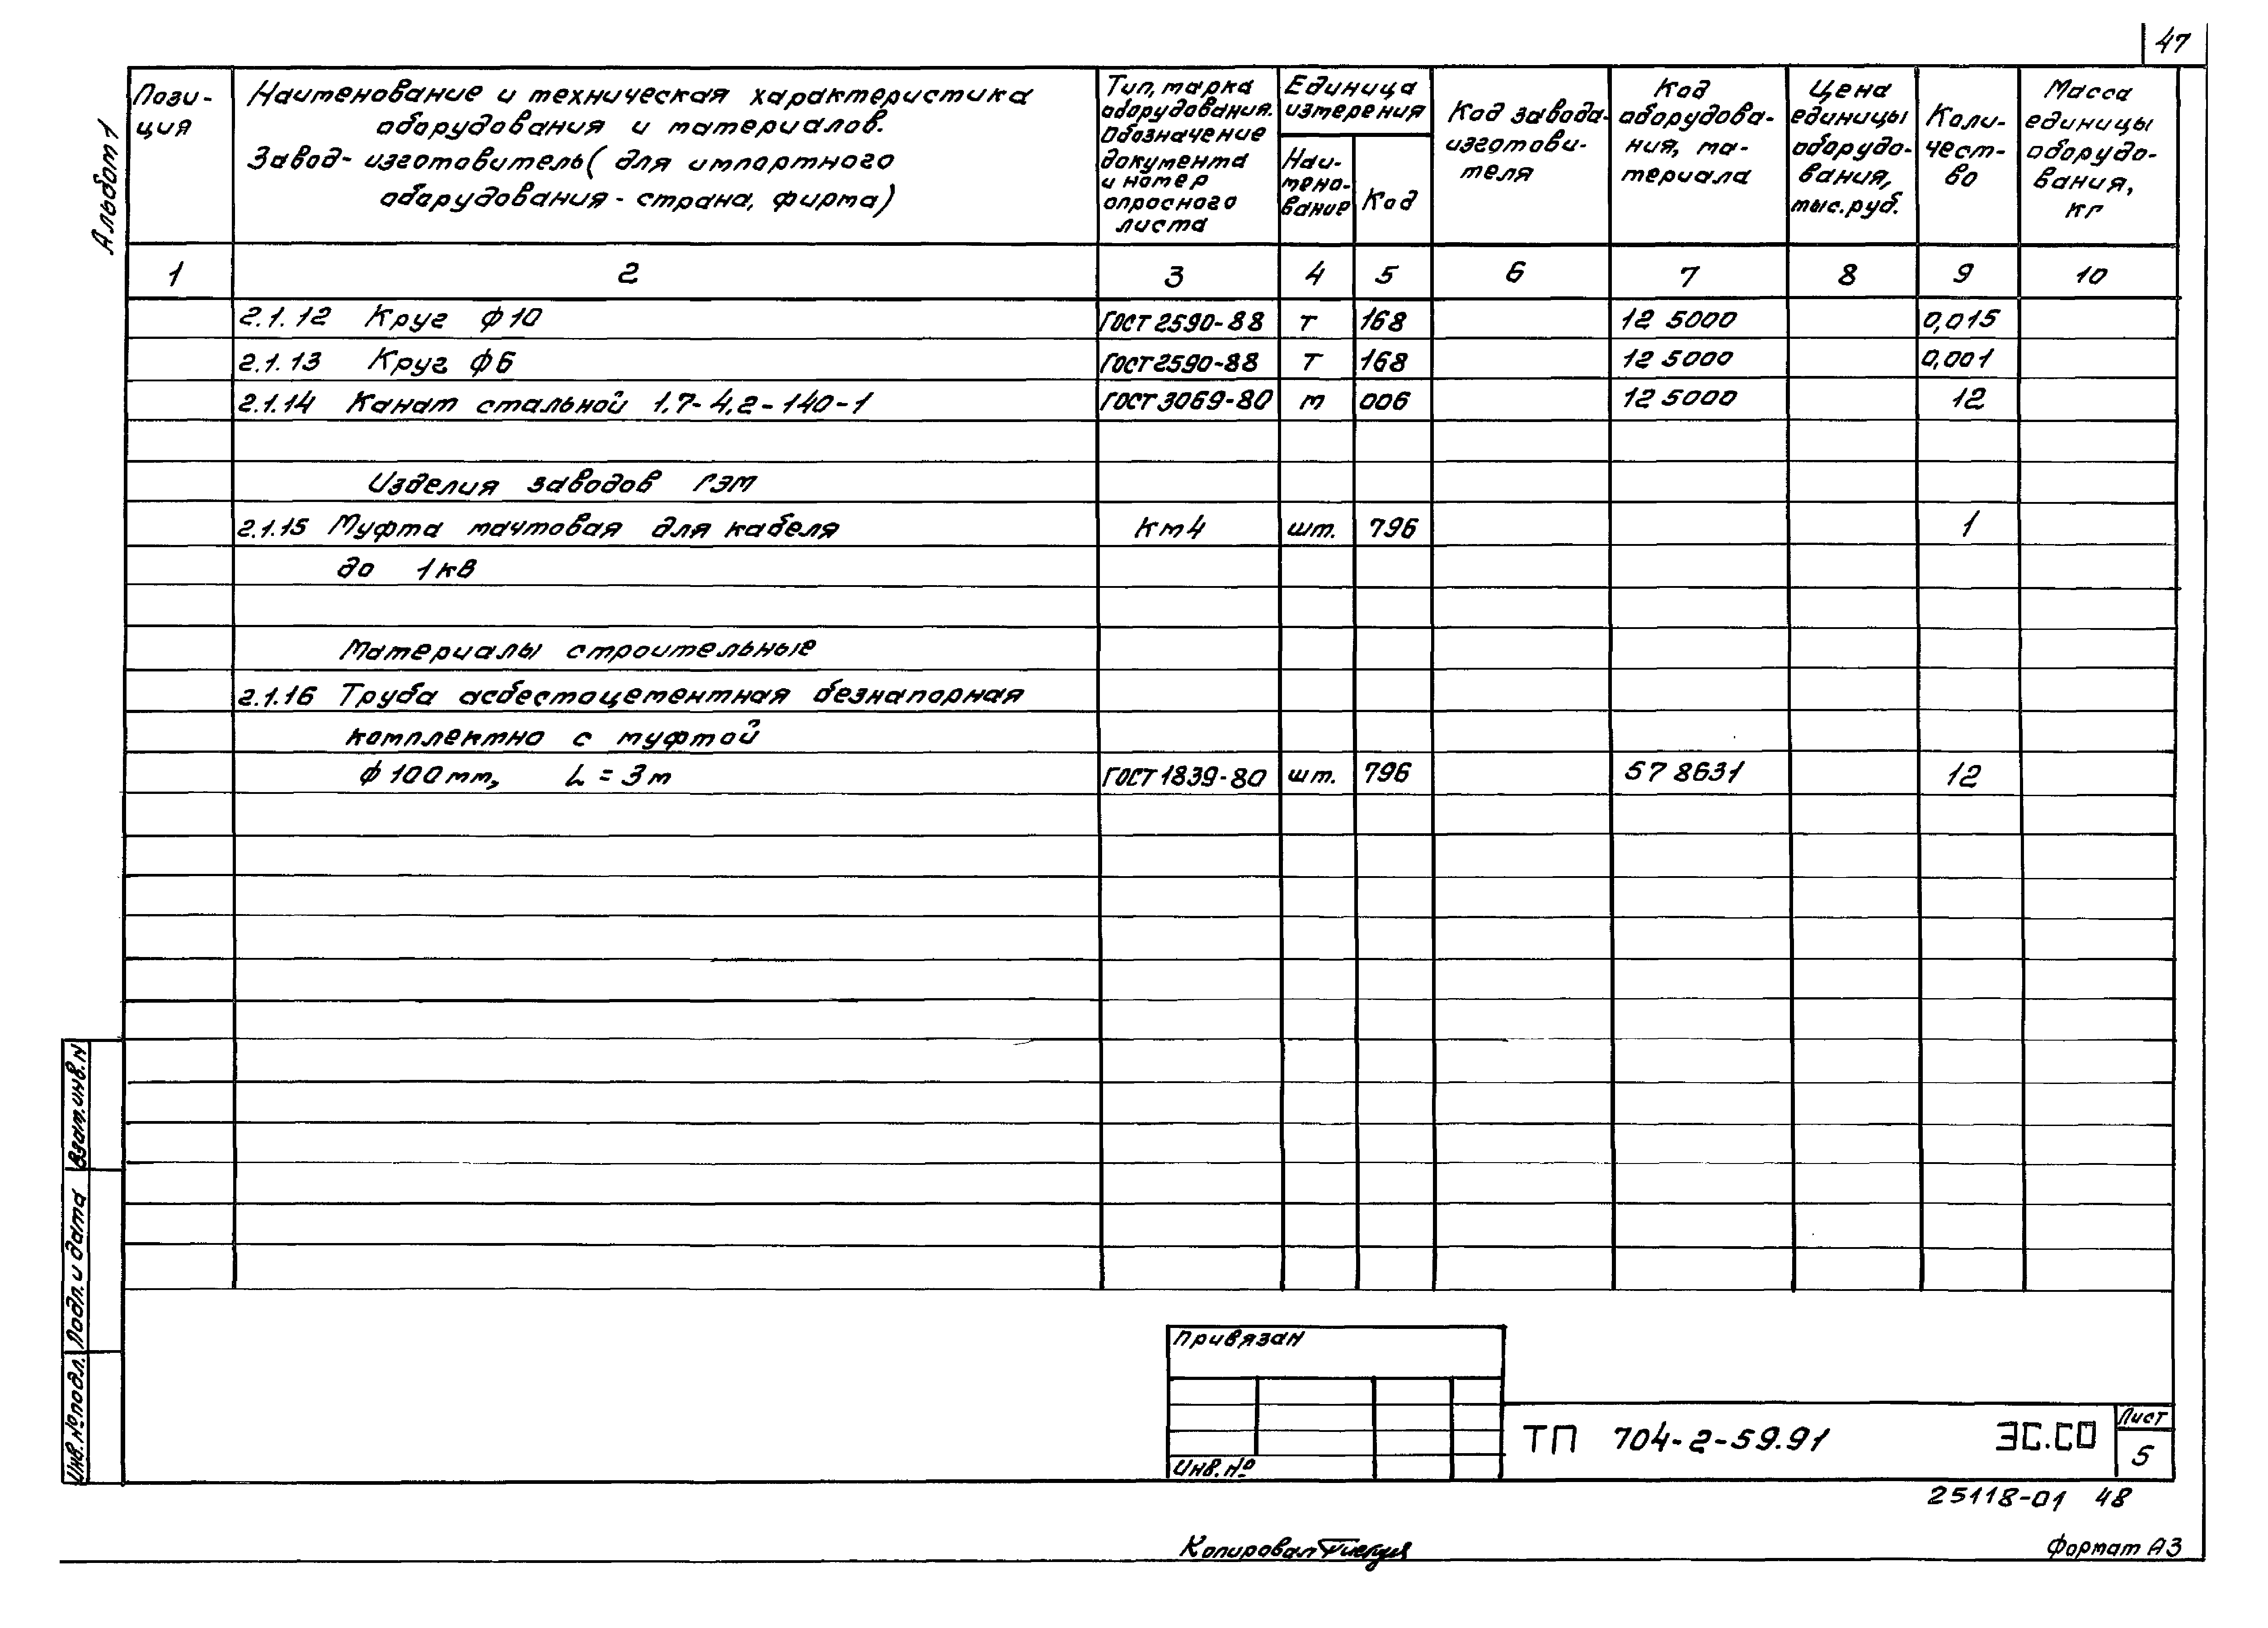 47
Альбом 1
Пози-
ция
Наименование и техническая характеристика
оборудования и материалов.
Завод-изготовитель (для импортного
оборудования - страна, фирма)
Тип, марка
оборудования.
Обозначение
документа
и номер
опросного
листа
Единица
измерения
Наи-
мено-
вание
Код
Код завода-
изготови-
теля
Код
оборудова-
ния, ма-
териала
Цена
единицы
оборудо-
вания,
тыс.руб.
Коли-
чест-
во
Масса
единицы
оборудо-
вания,
кг
1 2 3 4 5 6 7 8 9 10
2.1.12 Круг ф10 ГОСТ 2590-88 т 168 12 5000 0,015
2.1.13 Круг ф6 ГОСТ 2590-88 т 168 12 5000 0,001
2.1.14 Канат стальной 1,7-4,2-140-1 ГОСТ 3069-80 м 006 12 5000 12
Изделия заводов ГЭМ
2.1.15 Муфта мачтовая для кабеля Км4 шт. 796 1
до 1кв
Материалы строительные
2.1.16 Труба асбестоцементная безнапорная
комплектно с муфтой
ф 100мм, L = 3м ГОСТ 1839-80 шт. 796 57 8631 12
Взам.инв.N
Подп. и дата
Инв.№подл.
Привязан
Инв.№
ТП 704-2-59.91 ЭС.СО
Лист
5
25118-01 48
Копировал
Формат А3